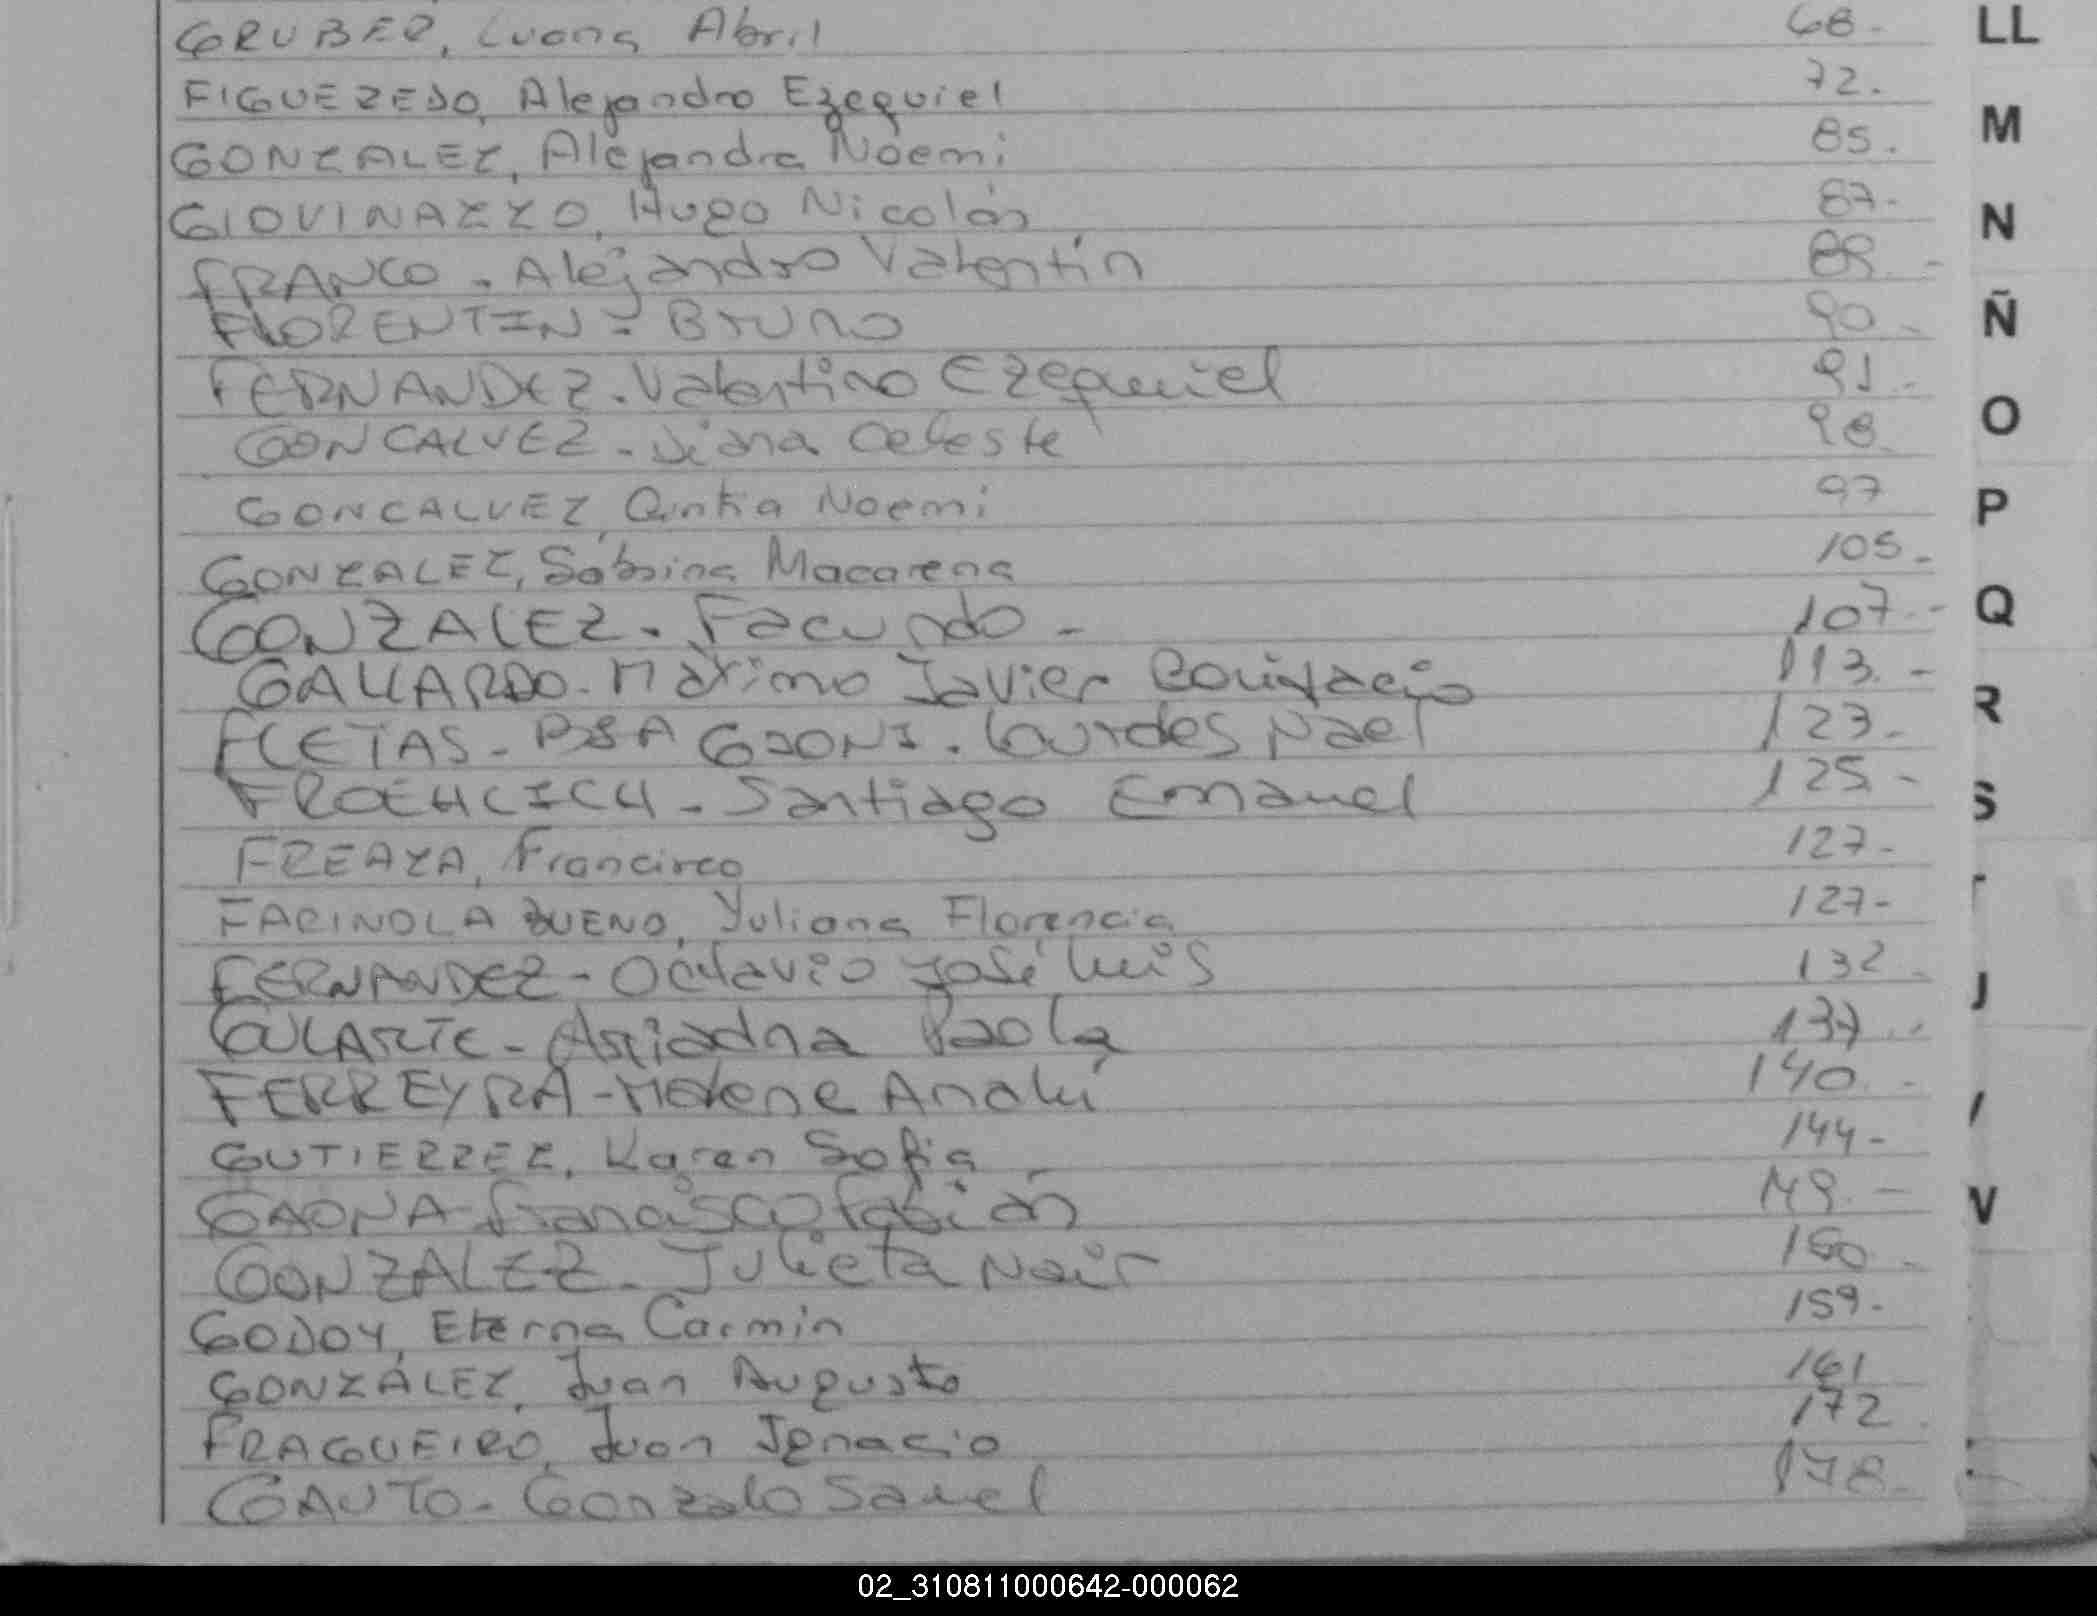 GRUBER, Luana Abril 68.-
FIGUEREDO, Alejandro Ezequiel 72.
GONZALEZ, Alejandra Noemi 85.
GIOVINAZZO, Hugo Nicolás 87.-
FRANCO - Alejandro Valentín 88.-
FLORENTIN - Bruno 90.-
FERNANDEZ - Valentino Ezequiel 91.-
GONCALVEZ - Diana Celeste
GONCALVEZ, Cintia Noemi 97
GONZALEZ, Sabrina Macarena 105.-
GONZALEZ - Facundo - 107.-
GALLARDO - Máximo Javier Bonifacio 113.-
FLEITAS - Lourdes Nael 123.-
FROEHLICH - Santiago Emanuel 125.-
FREAZA, Francisco 127.-
FARINOLA BUENO, Yuliana Florencia 127-
FERNANDEZ - Octavio José Luis 132.-
GULARTE - Ariadna Paola 137.-
FERREYRA - Anahí 140.-
GUTIERREZ, Karen Sofia 144-
GAONA - Francisco Fabián 149.-
GONZALEZ - Julieta Nair 150.-
GODOY, Eterna Carmin 159.-
GONZÁLEZ, Juan Augusto 161
FRAGUEIRO, Juan Ignacio 172.
GAUTO - Gonzalo Samuel 178.-
LL
M
N
Ñ
O
P
Q
R
S
V
02_310811000642-000062